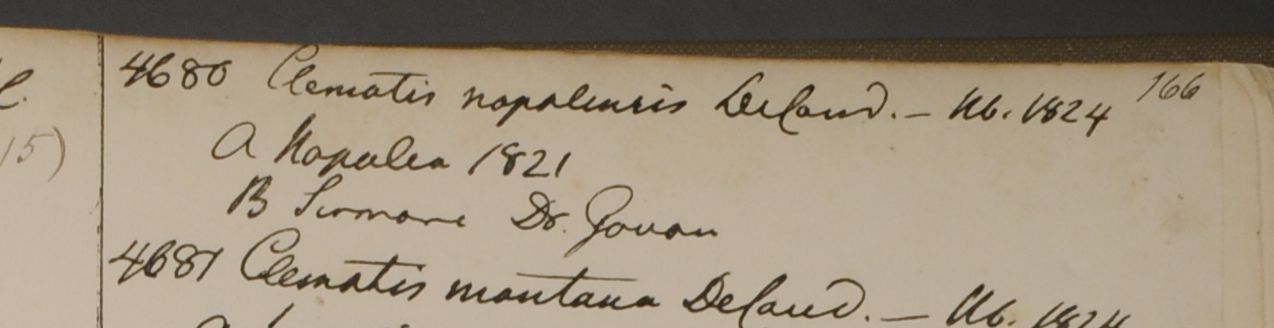 166
4680 Clematis napalensis DeCand. — Hb. 1824
A Napalea 1821
B Sirmore Dr. Govan
4681 Clematis montana DeCand. — Hb. 1824
15)